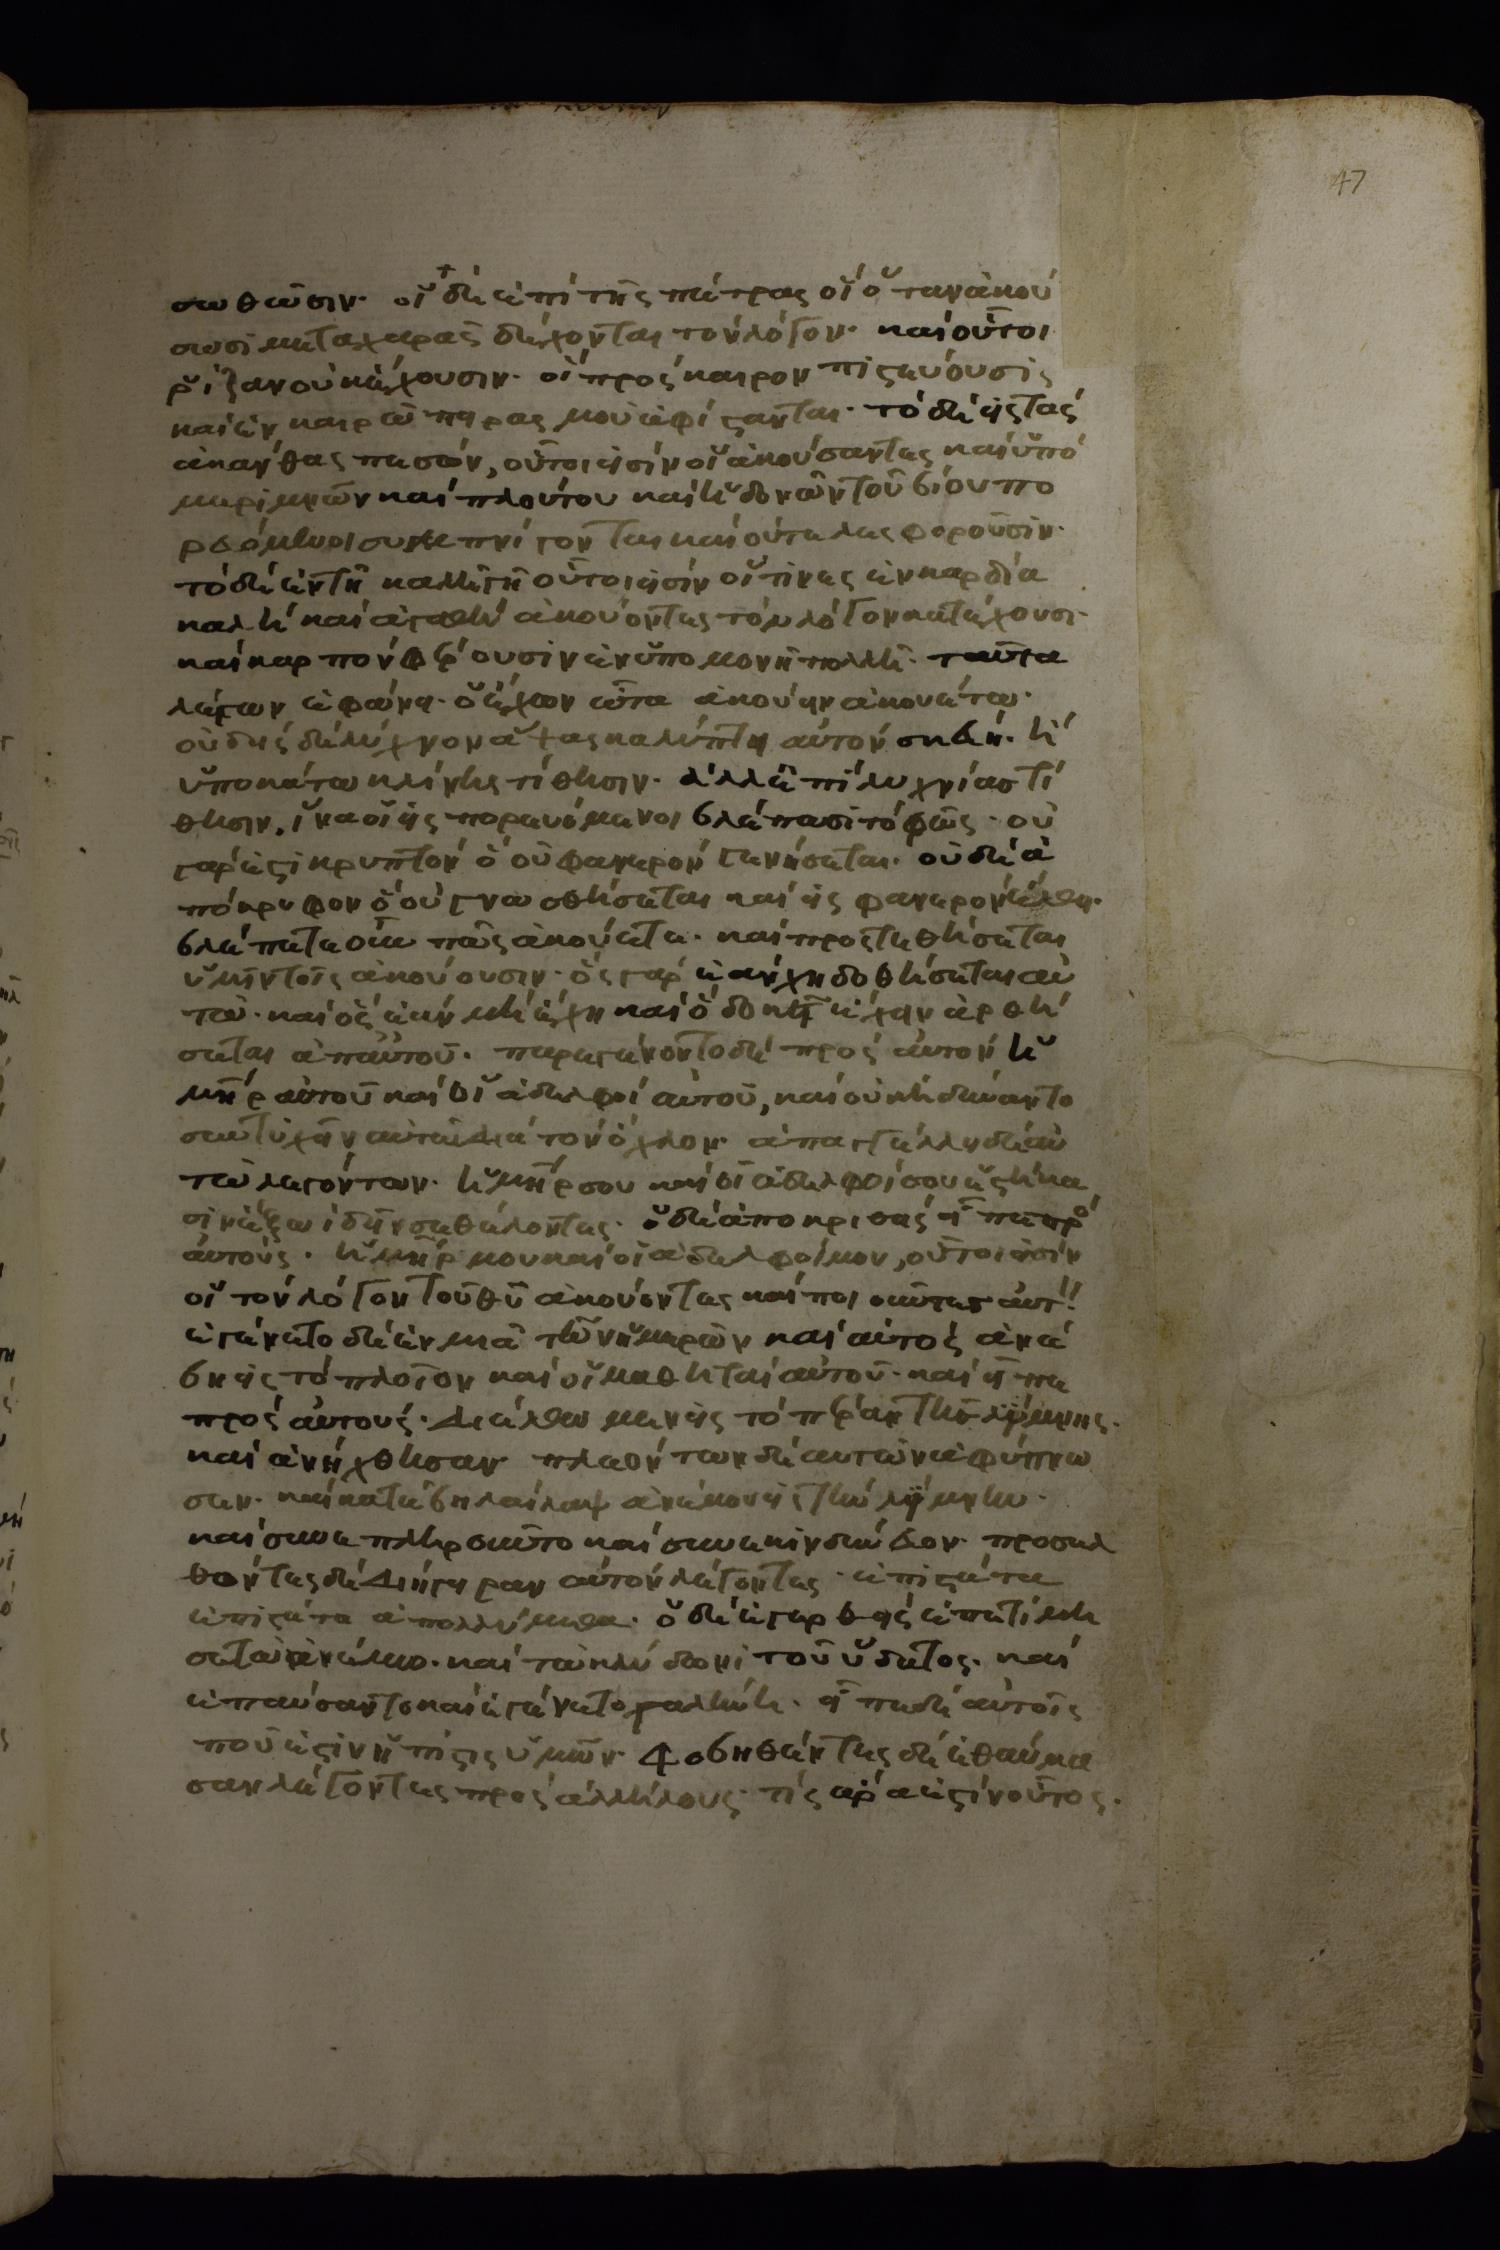 47
σωθῶσιν· οἱ δὲ ἐπὶ τῆς πέτρας οἳ ὅταν ἀκού
σωσι μετὰ χαρᾶς δέχονται τὸν λόγον· καὶ οὗτοι
ῥίζαν οὐκ ἔχουσιν· οἳ πρὸς καιρὸν πιστεύουσι
καὶ ἐν καιρῶ πειρασμοῦ ἀφίστανται· τὸ δὲ εἰς τὰς
ἀκάνθας πεσών, οὗτοι εἰσὶν οἱ ἀκούσαντες καὶ ὑπὸ
μεριμνῶν καὶ πλούτου καὶ ἡδονῶν τοῦ βίου πο
ρευόμενοι συμπνίγονται καὶ οὐ τελεσφοροῦσιν·
τὸ δὲ ἐν τῆ καλῆ γῆ οὗτοι εἰσὶν οἵτινες ἐν καρδία
καλῆ καὶ ἀγαθῆ ἀκούοντες τὸν λόγον κατέχουσι·
καὶ καρποφοροῦσιν ἐν ὑπομονῆ πολλῆ· ταῦτα
λέγων ἐφώνει· ὁ ἔχων ὦτα ἀκούειν ἀκουέτω·
οὐδεὶς δὲ λύχνον ἅψας καλύπτει αὐτὸν σκεύει· ἢ
ὑποκάτω κλίνης τίθησιν· ἀλλ' ἐπὶ λυχνίας τί
θησιν, ἵνα οἱ εἰσπορευόμενοι βλέπωσι τὸ φῶς· οὐ
γάρ ἐστι κρυπτὸν ὃ οὐ φανερὸν γενήσεται· οὐδὲ ἀ
πόκρυφον ὃ οὐ γνωσθήσεται καὶ εἰς φανερὸν ἔλθη·
βλέπετε οὖν πῶς ἀκούετε· καὶ προστεθήσεται
ὑμῖν τοῖς ἀκούουσιν· ὃς γὰρ ἐὰν ἔχη δοθήσεται αὐ
τῶ· καὶ ὃς ἐὰν μὴ ἔχη καὶ ὃ δοκεῖ ἔχειν ἀρθή
σεται ἀπ' αὐτοῦ· παρεγένοντο δὲ πρὸς αὐτὸν ἡ
μῆρ αὐτοῦ καὶ οἱ ἀδελφοὶ αὐτοῦ, καὶ οὐκ ἠδύναντο
συντυχεῖν αὐτῶ διὰ τὸν ὄχλον· ἀπαγγέλλει δὲ αὐ
τῶ λεγόντων· ἡ μῆρ σου καὶ οἱ ἀδελφοί σου ἑστήκα
σιν ἔξω ἰδεῖν σε θέλοντες· ὁ δὲ ἀποκριθεὶς εἶπε πρὸ
αὐτούς· ἡ μῆρ μου καὶ οἱ ἀδελφοί μου, οὗτοι εἰσὶν
οἱ τὸν λόγον τοῦ θῦ ἀκούοντες καὶ ποιοῦντες αὐτ·
ἐγένετο δὲ ἐν μιᾶ τῶν ἡμερῶν καὶ αὐτὸς ἀνέ
βη εἰς τὸ πλοῖον καὶ οἱ μαθηταὶ αὐτοῦ· καὶ εἶπε
πρὸς αὐτούς· διέλθωμεν εἰς τὸ πέραν τῆς λίμνης·
καὶ ἀνήχθησαν· πλεόντων δὲ αὐτῶν ἀφύπνω
σεν· καὶ κατέβη λαίλαψ ἀνέμου εἰς τὴν λίμνην·
καὶ συνεπληροῦντο καὶ ἐκινδύνευον· προσελ
θόντες δὲ διήγειραν αὐτὸν λέγοντες· ἐπιστάτα
ἐπιστάτα ἀπολλύμεθα· ὁ δὲ ἐγερθεὶς ἐπετίμη
σε τῶ ἀνέμω· καὶ τῶ κλύδωνι τοῦ ὕδατος· καὶ
ἐπαύσαντο καὶ ἐγένετο γαλήνη· εἶπε δὲ αὐτοῖς
ποῦ ἐστιν ἡ πίστις ὑμῶν· φοβηθέντες δὲ ἐθαύμα
σαν λέγοντες πρὸς ἀλλήλους· τίς ἄρα ἐστὶν οὗτος·